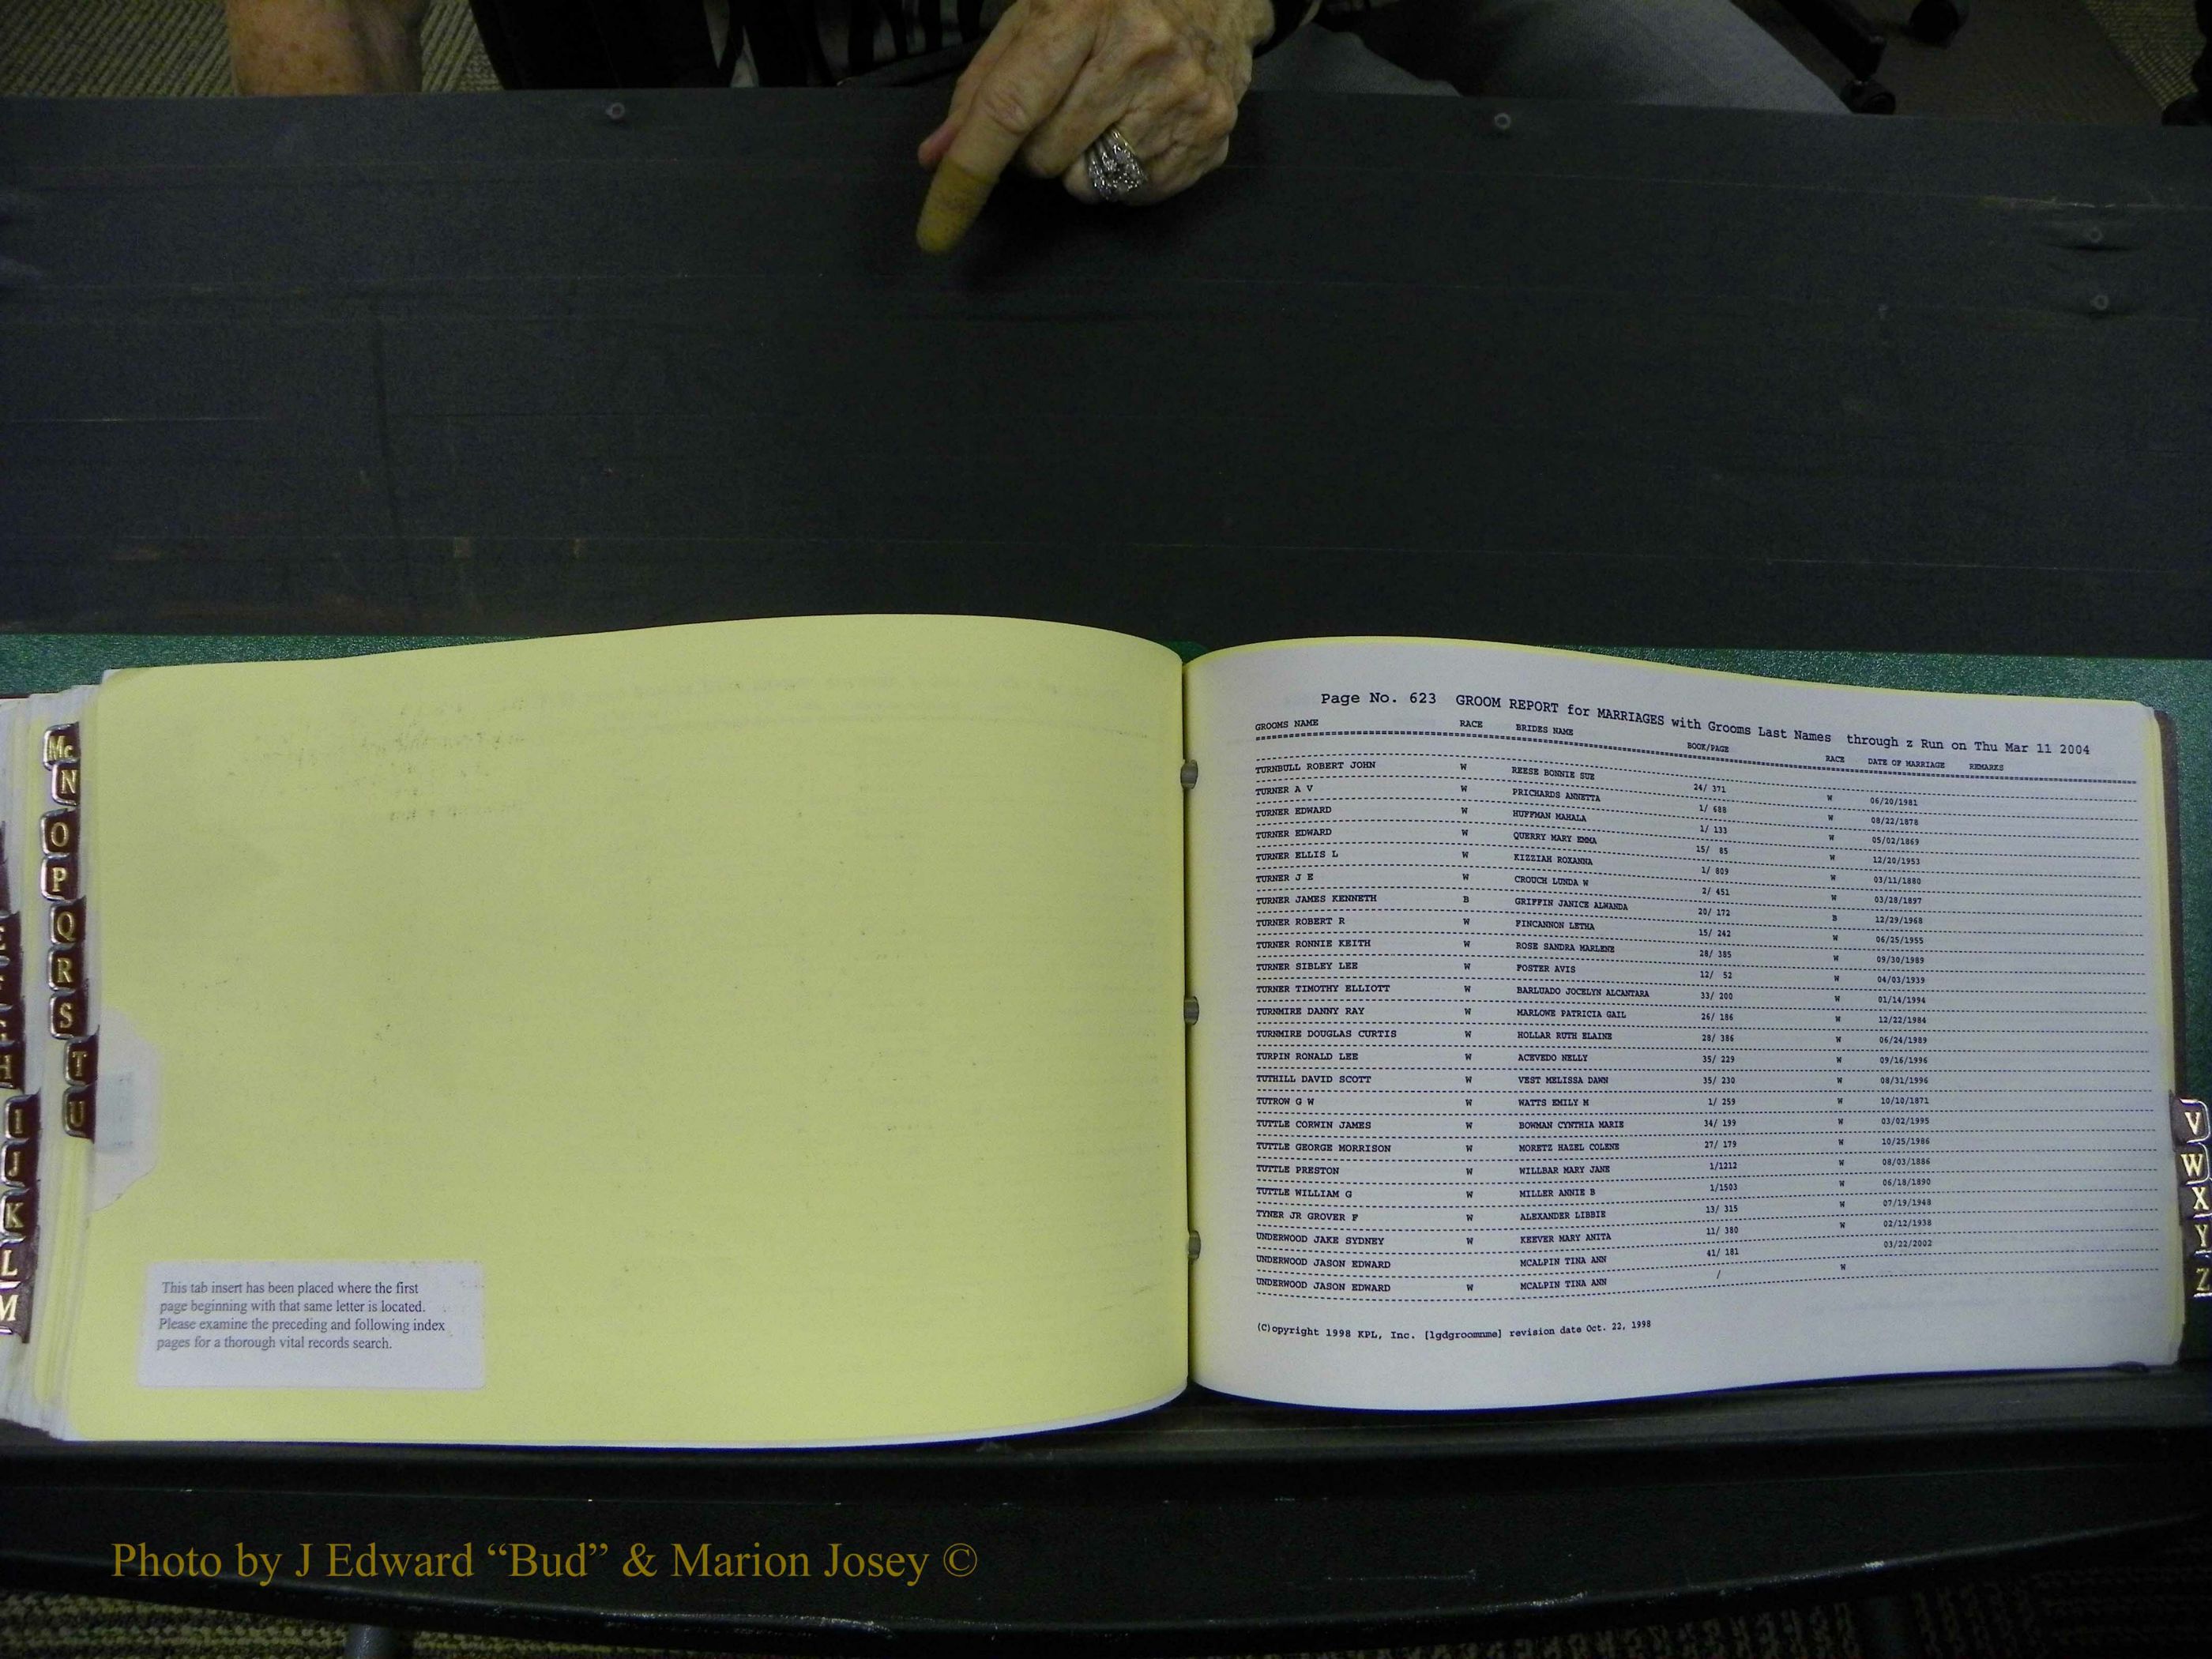 Mc
N
O
P
Q
R
S
T
U
E
F
G
H
I
J
K
L
M
This tab insert has been placed where the first
page beginning with that same letter is located.
Please examine the preceding and following index
pages for a thorough vital records search.
Page No. 623 GROOM REPORT for MARRIAGES with Grooms Last Names through z Run on Thu Mar 11 2004
GROOMS NAME RACE BRIDES NAME BOOK/PAGE RACE DATE OF MARRIAGE REMARKS
TURNBULL ROBERT JOHN W REESE BONNIE SUE 24/ 371 W 06/20/1981
TURNER A V W PRICHARDS ANNETTA 1/ 688 W 08/22/1878
TURNER EDWARD W HUFFMAN MAHALA 1/ 133 W 05/02/1869
TURNER EDWARD W QUERRY MARY EMMA 15/ 85 W 12/20/1953
TURNER ELLIS L W KIZZIAH ROXANNA 1/ 809 W 03/11/1880
TURNER J E W CROUCH LUNDA W 2/ 451 W 03/28/1897
TURNER JAMES KENNETH B GRIFFIN JANICE ALWANDA 20/ 172 B 12/29/1968
TURNER ROBERT R W FINCANNON LETHA 15/ 242 W 06/25/1955
TURNER RONNIE KEITH W ROSE SANDRA MARLENE 28/ 385 W 09/30/1989
TURNER SIBLEY LEE W FOSTER AVIS 12/ 52 W 04/03/1939
TURNER TIMOTHY ELLIOTT W BARLUADO JOCELYN ALCANTARA 33/ 200 W 01/14/1994
TURNMIRE DANNY RAY W MARLOWE PATRICIA GAIL 26/ 186 W 12/22/1984
TURNMIRE DOUGLAS CURTIS W HOLLAR RUTH ELAINE 28/ 386 W 06/24/1989
TURPIN RONALD LEE W ACEVEDO NELLY 35/ 229 W 09/16/1996
TUTHILL DAVID SCOTT W VEST MELISSA DAWN 35/ 230 W 08/31/1996
TUTROW G W W WATTS EMILY M 1/ 259 W 10/10/1871
TUTTLE CORWIN JAMES W BOWMAN CYNTHIA MARIE 34/ 199 W 03/02/1995
TUTTLE GEORGE MORRISON W MORETZ HAZEL COLENE 27/ 179 W 10/25/1986
TUTTLE PRESTON W WILLBAR MARY JANE 1/1212 W 08/03/1886
TUTTLE WILLIAM G W MILLER ANNIE B 1/1503 W 06/18/1890
TYNER JR GROVER F W ALEXANDER LIBBIE 13/ 315 W 07/19/1948
UNDERWOOD JAKE SYDNEY W KEEVER MARY ANITA 11/ 380 W 02/12/1938
UNDERWOOD JASON EDWARD MCALPIN TINA ANN 41/ 181 03/22/2002
UNDERWOOD JASON EDWARD W MCALPIN TINA ANN / W
(C)opyright 1998 KPL, Inc. [lgdgroomnme] revision date Oct. 22, 1998
V
W
X
Y
Z
Photo by J Edward “Bud” & Marion Josey ©